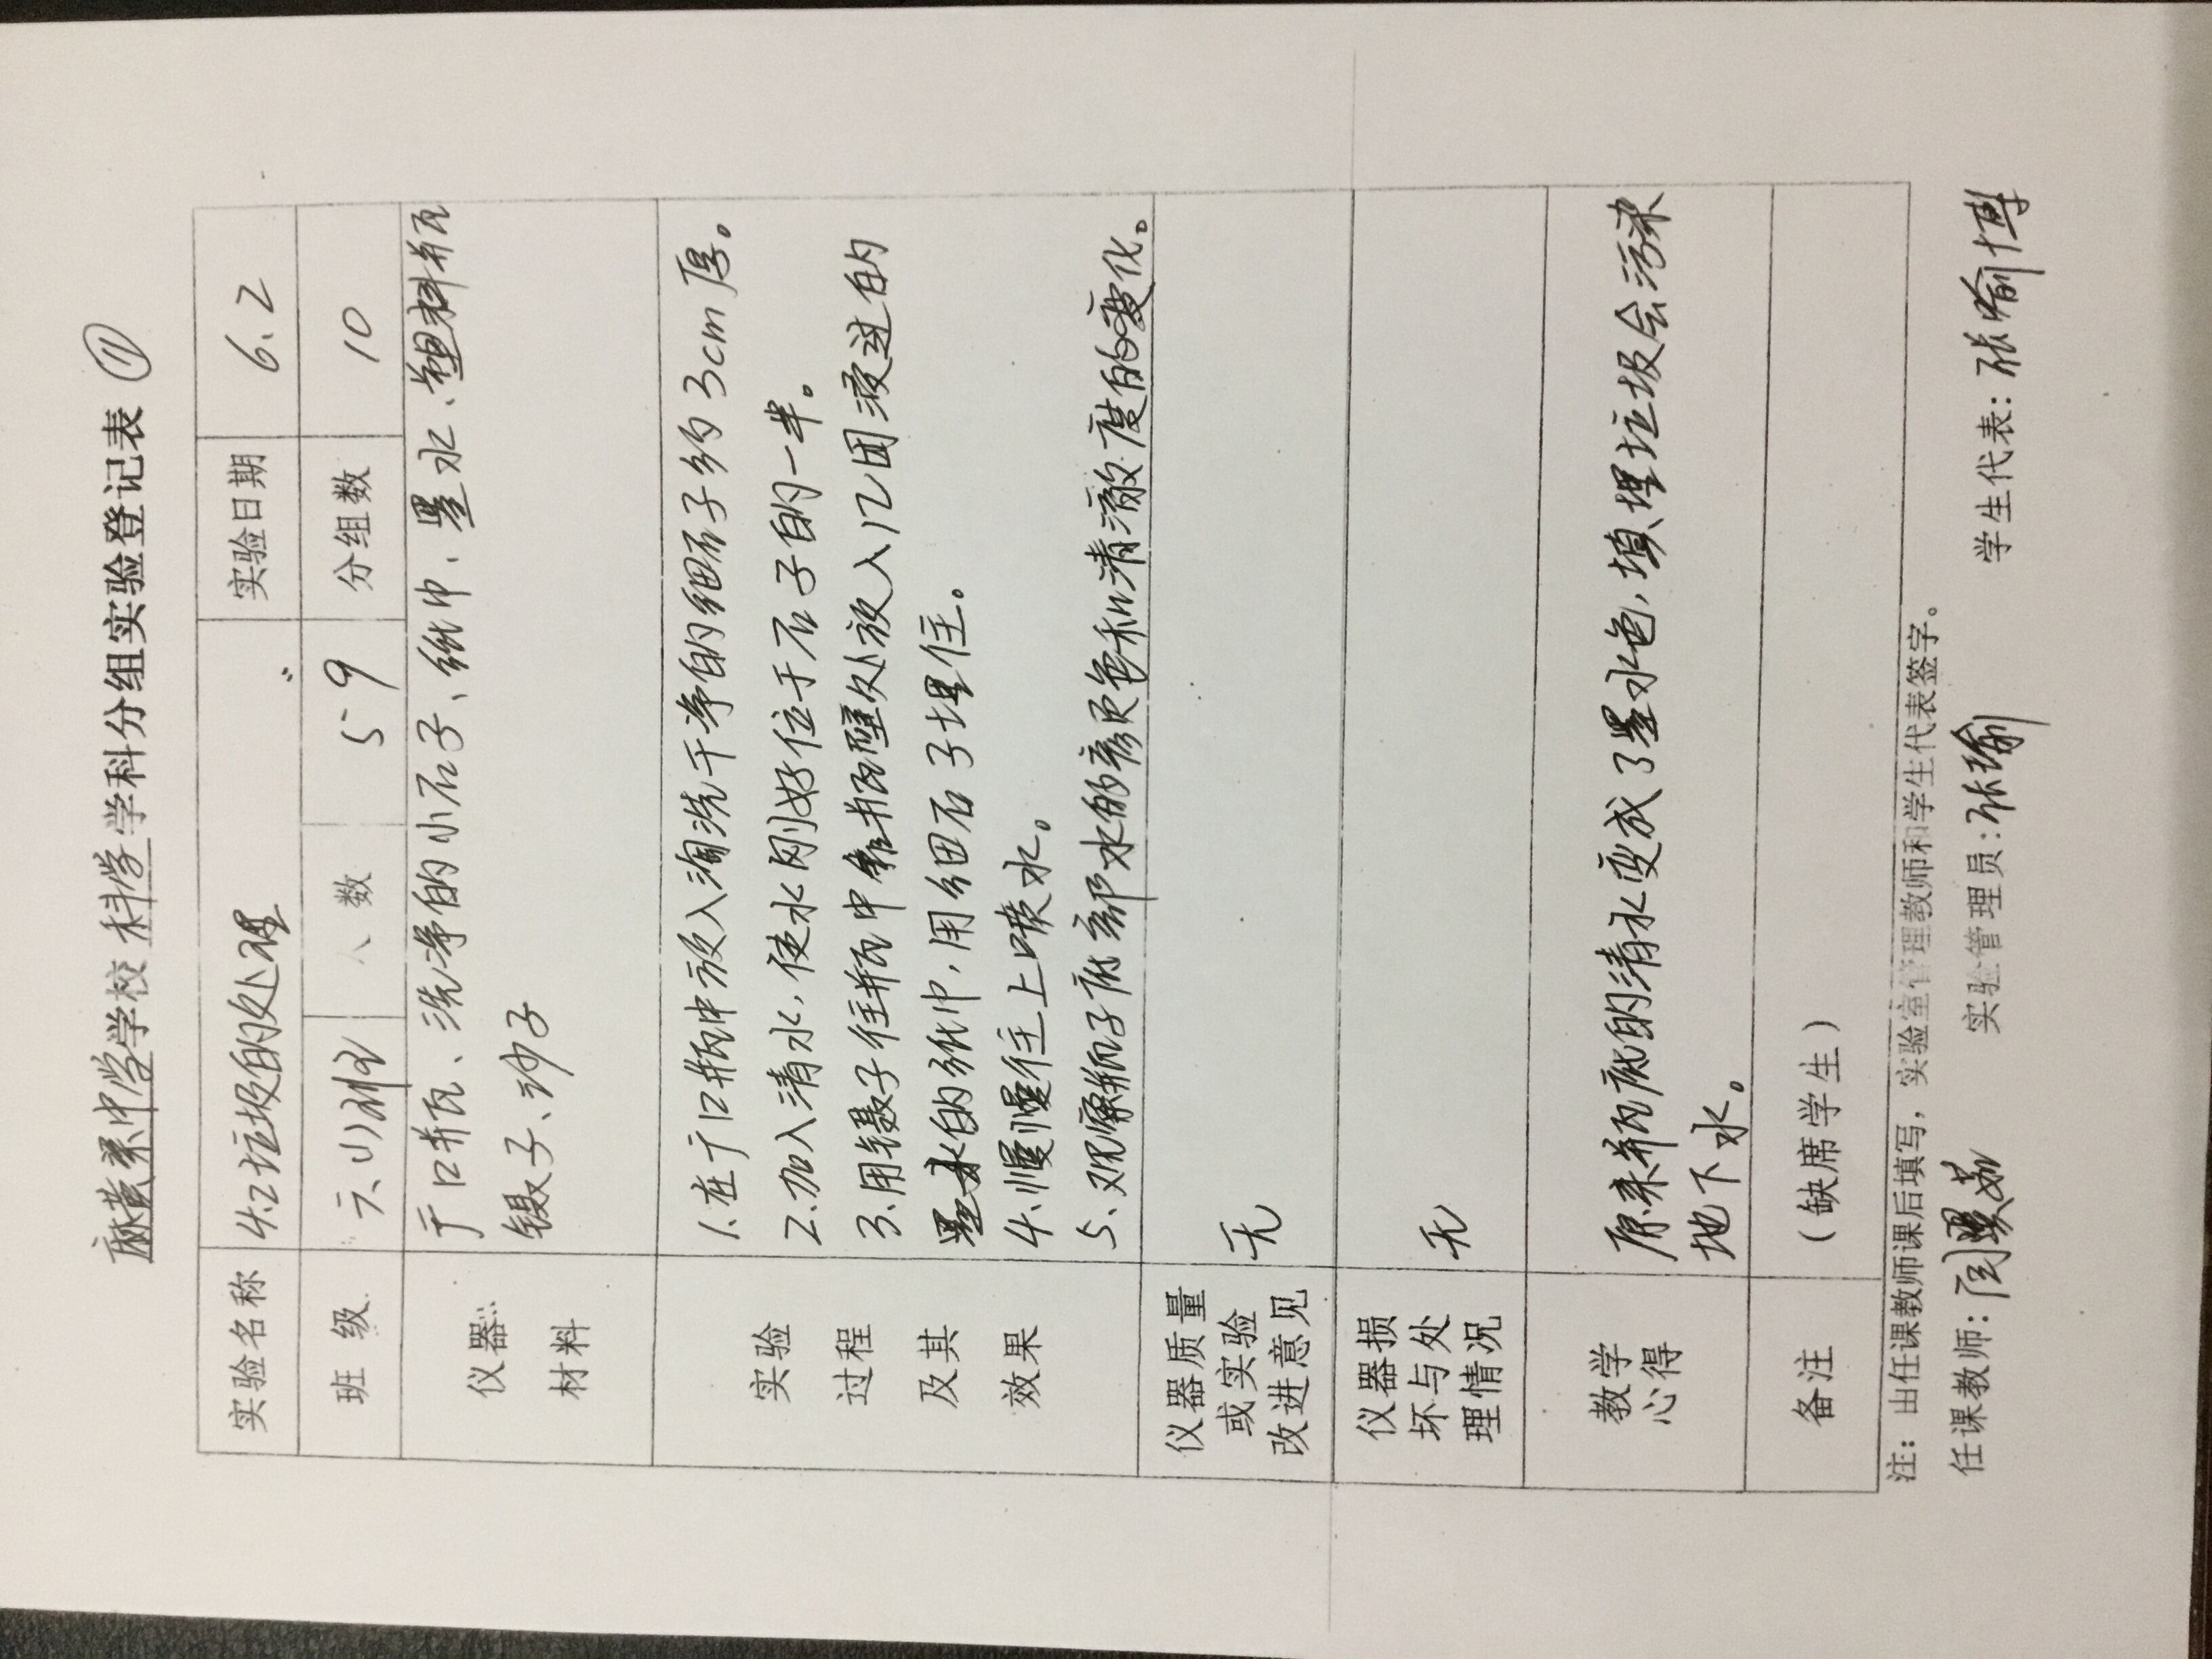 麻黄系中学学校 科学学科分组实验登记表 ⑪
实验名称 4.2垃圾的处理 实验日期 6、2
班 级 六、(1)班 人 数 59 分组数 10
仪器 广口并瓦、洗净的小石子、纸巾、墨水、塑料并瓦
材料 镊子、沙子
实验 1.在广口瓶中放入淘洗干净的细石子约3cm厚。
过程 2.加入清水,使水刚好位于石子的一半。
及其 3.用镊子往瓶中靠瓶壁处放入几团浸过的
墨水的纸巾,用细石子埋住。
效果 4.慢慢往上喷水。
5、观察瓶子底部水的颜色和清澈度的变化。
仪器质量
或实验 无
改进意见
仪器损
坏与处 无
理情况
教学 原来瓶底的清水变成了墨水色,填埋垃圾会污染
心得 地下水。
备注 (缺席学生)
注:由任课教师课后填写,实验室管理教师和学生代表签字。
任课教师: 实验管理员:张瑜 学生代表:张喻博